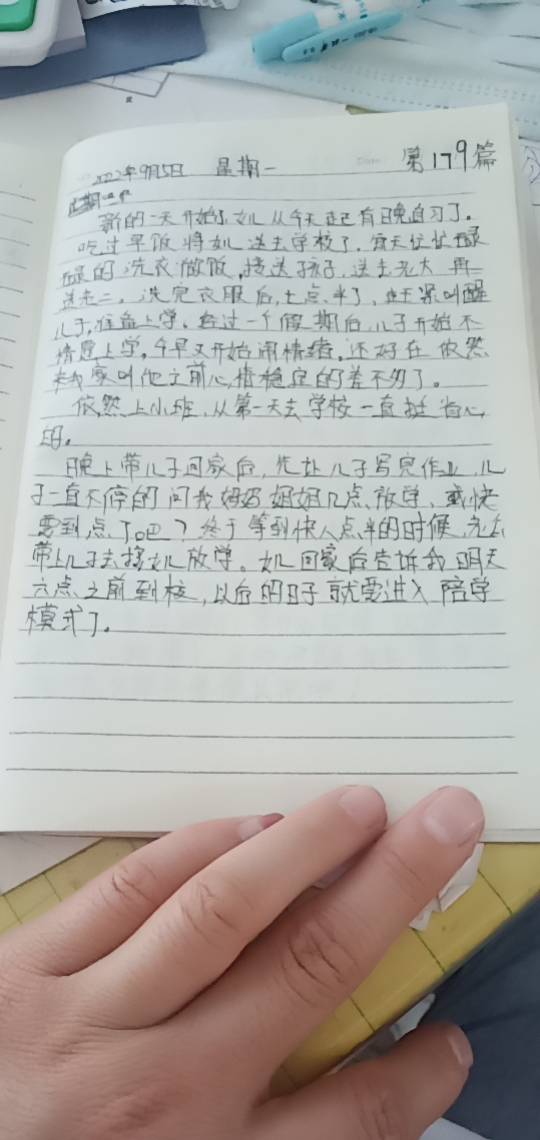 2022年9月5日 星期一 第179篇
新的一天开始了,女儿从今天起有晚自习了。
吃过早饭将女儿送去学校了,每天忙忙碌
碌的洗衣做饭,接送孩子,送走老大再
送老二。洗完衣服后,七点半了,赶紧叫醒
儿子,准备上学。经过一个假期后,儿子开始不
情愿上学,今早又开始闹情绪。还好在依然
来我家叫他之前心情稳定的差不多了。
依然上小班,从第一天去学校一直挺省心
的。
晚上带儿子回家后,先让儿子写完作业,儿
子一直不停的问我妈妈姐姐几点放学,或快
要到点了吧?终于等到快八点半的时候,
带上儿子去接女儿放学。女儿回家后告诉我明天
六点之前到校,以后的日子就要进入陪学
模式了。